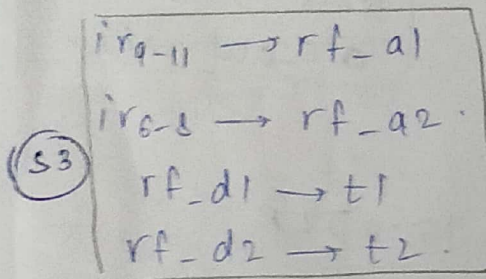 ir9-11 → rf_a1
ir6-8 → rf_a2.
S3
rf_d1 → t1
rf_d2 → t2.